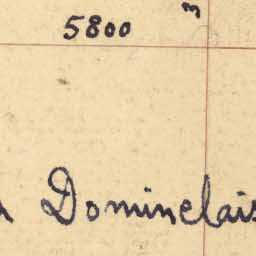 5800 m
Dominelais